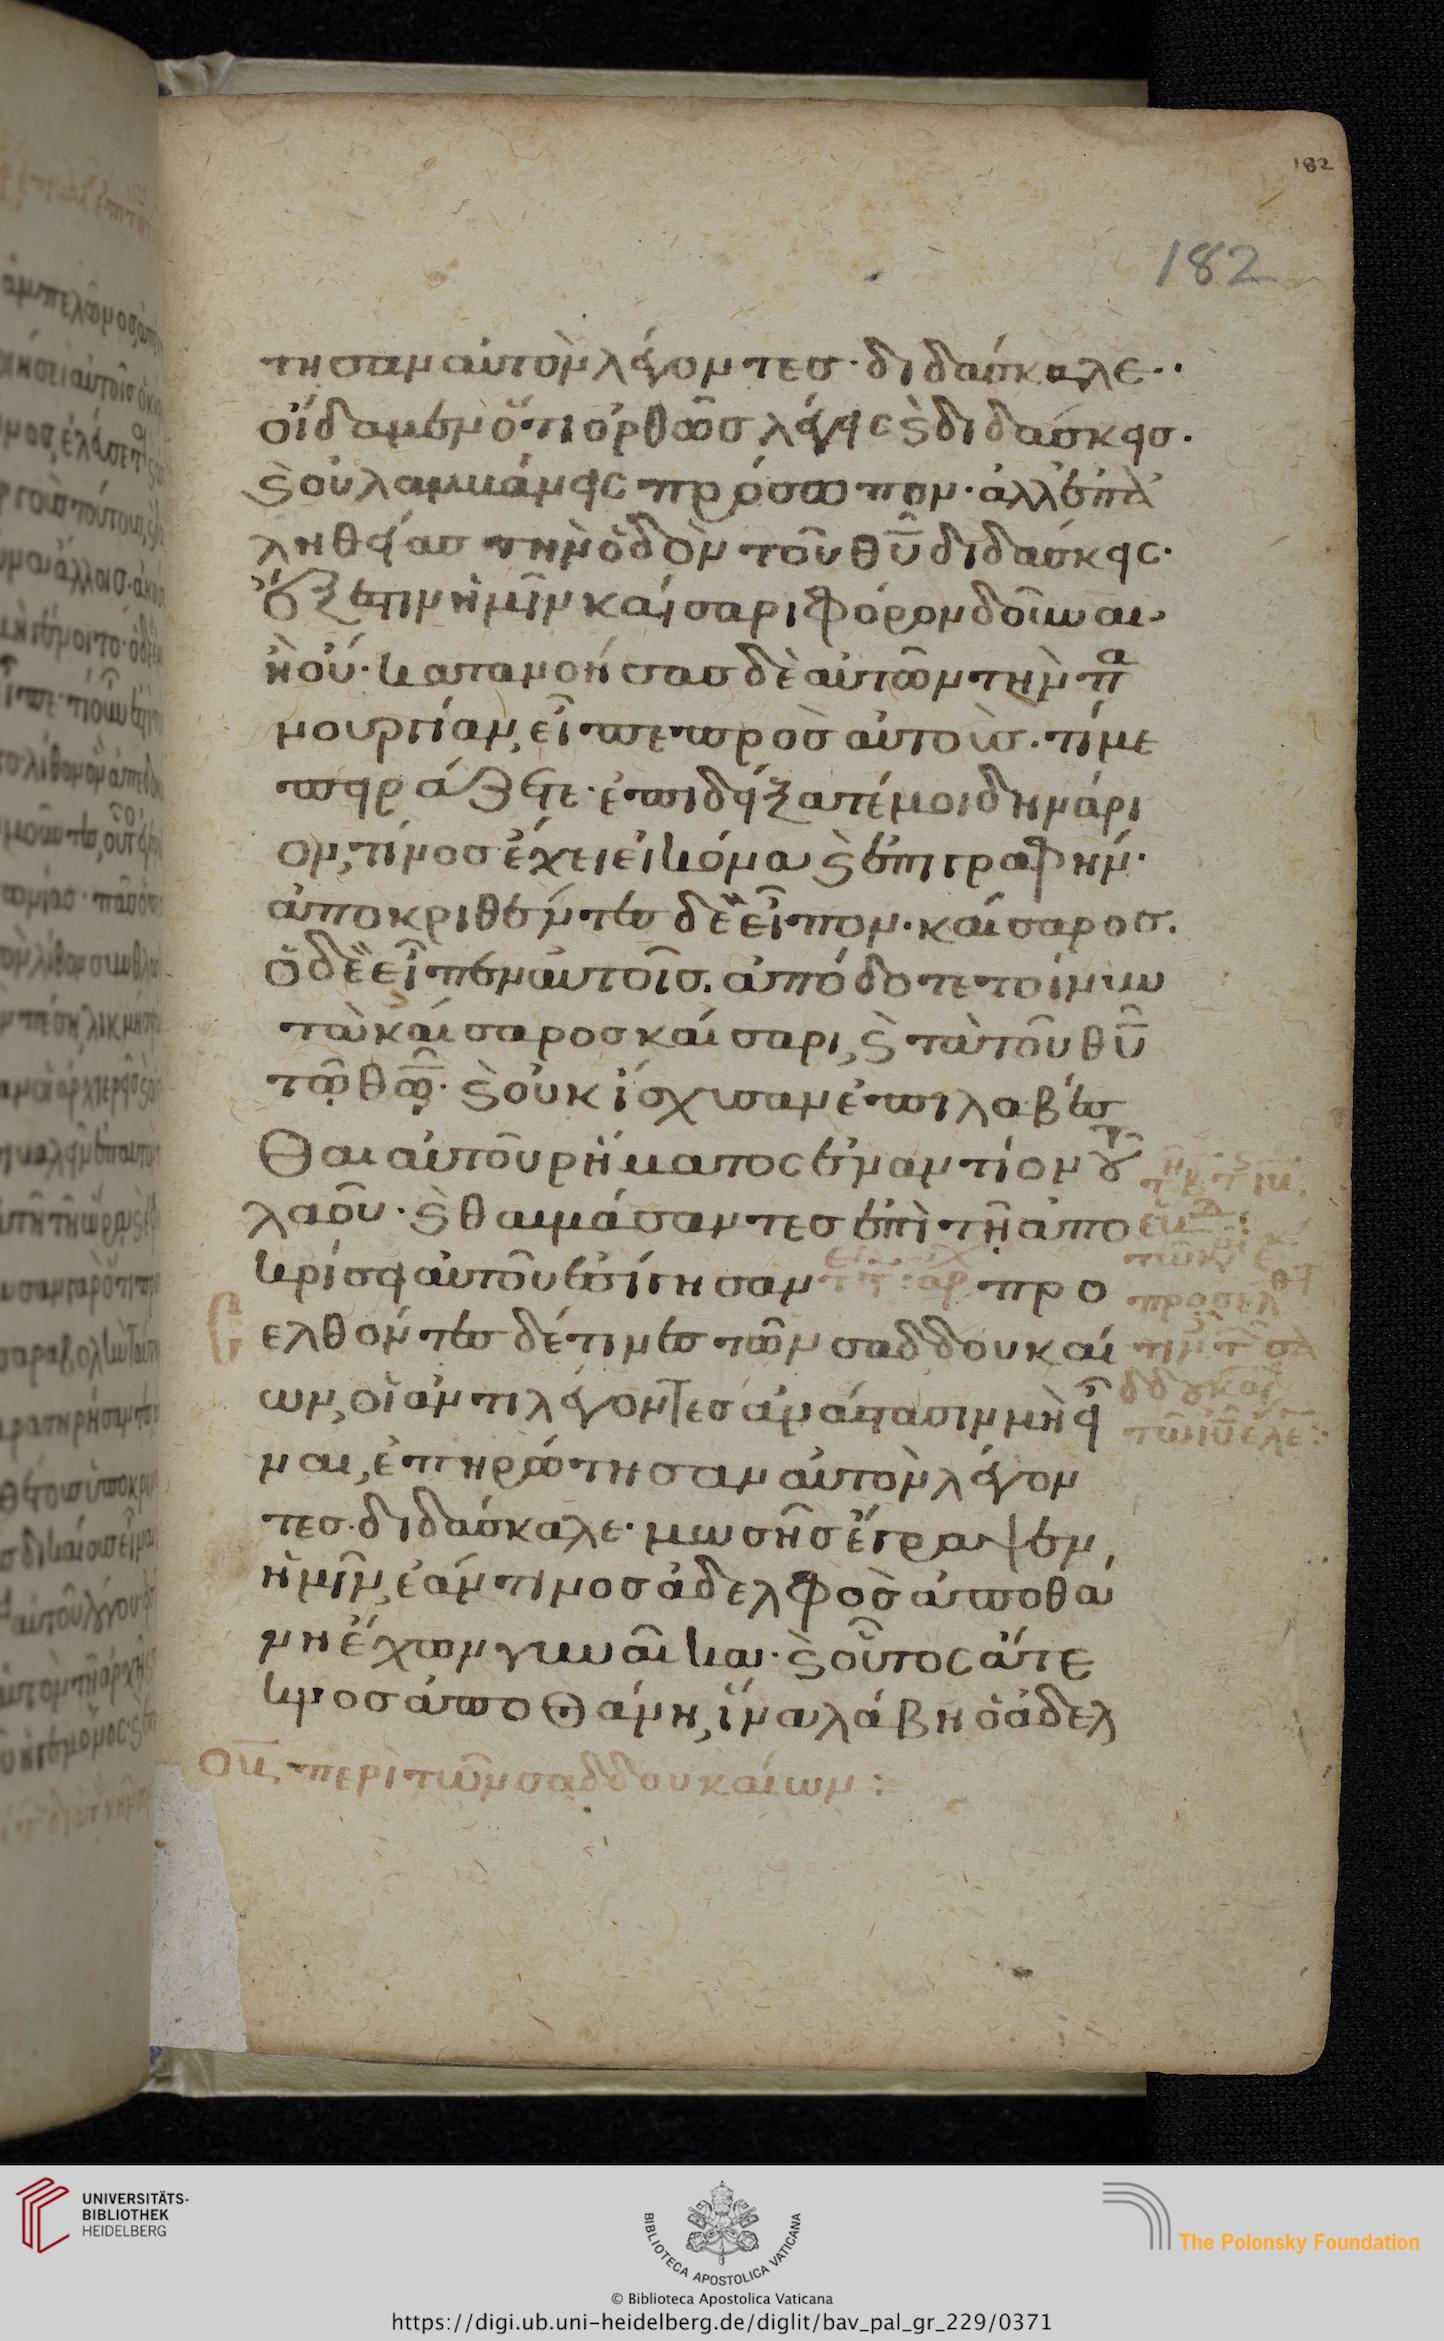 182
182
τησαν αὐτὸν λέγοντες· διδάσκαλε··
οἴδαμεν ὅτι ὀρθῶς λέγεις ϛ̀ διδάσκεις.
ϛ̀ οὐ λαμμάνεις πρόσωπον· ἀλλ ἐπ ἀ
ληθείας τὴν ὁδὸν τοῦ θῦ διδάσκεις·
ἔξεστιν ἡμῖν καίσαρι φόρον δοῦναι,
ἢ οὔ· κατανοήσας δὲ αὐτῶν τὴν πα
νουργίαν, εἶπε πρὸς αὐτούς· τί με
πειράζετε· ἐπιδείξατέ μοι δηνάρι
ον, τίνος ἔχει εἰκόνα ϛ̀ ἐπιγραφήν·
ἀποκριθέντες δὲ εἶπον· καίσαρος.
ὁ δὲ εἶπεν αὐτοῖς. ἀπόδοτε τοίνυν
τὰ καίσαρος καίσαρι, ϛ̀ τὰ τοῦ θῦ
τῷ θῷ· ϛ̀ οὐκ ἴσχυσαν ἐπιλαβέσ
θαι αὐτοῦ ῥήματος ἐναντίον τοῦ
λαοῦ· ϛ̀ θαυμάσαντες ἐπὶ τῇ ἀπο
κρίσει αὐτοῦ ἐσίγησαν προ
ελθόντες δέ τινες τῶν σαδδουκαί
ων, οἱ ἀντιλέγοντες ἀνάστασιν μὴ εἶ
ναι, ἐπηρώτησαν αὐτὸν λέγον
τες· διδάσκαλε· μωσῆς ἔγραψεν,
ἡμῖν, ἐάν τινος ἀδελφὸς ἀποθά
νη ἔχων γυναῖκα· ϛ̀ οὗτος ἄτε
κνος ἀποθάνη, ἵνα λάβη ὁ ἀδελ
περὶ τῶν σαδδουκαίων:
UNIVERSITÄTS-
BIBLIOTHEK
HEIDELBERG
BIBLIOTECA APOSTOLICA VATICANA
The Polonsky Foundation
© Biblioteca Apostolica Vaticana
https://digi.ub.uni-heidelberg.de/diglit/bav_pal_gr_229/0371